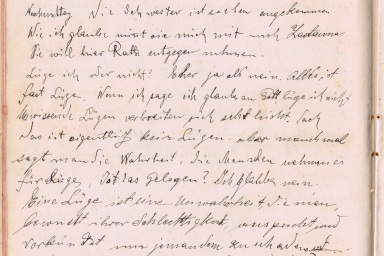 Nachmittag. Die Schwester ist eueben angekommen
Wie ich glaube müsst sie mich mit nach
Sie will hier Rath entgegen nehmen.
Lüge ich oder nicht? Eher ja als nein. Alles ist
fast Lüge. Wenn ich sage ich glaub an Gott lüge ich nicht.
Unwissende Lügen verbreiten sich sehr leicht. doch
Das ist eigentlich kein Lügen aber manchmal
sagt man die Wahrheit, die Menschen nehmen es
für Lüge, Ist das Gelogen? Ich glaube nein.
Eine Lüge ist eine Unwahrheit die man,
bewusst ihrer Schlechtigkeit, ausspricht und
verbreitet um jemandem zu schaden